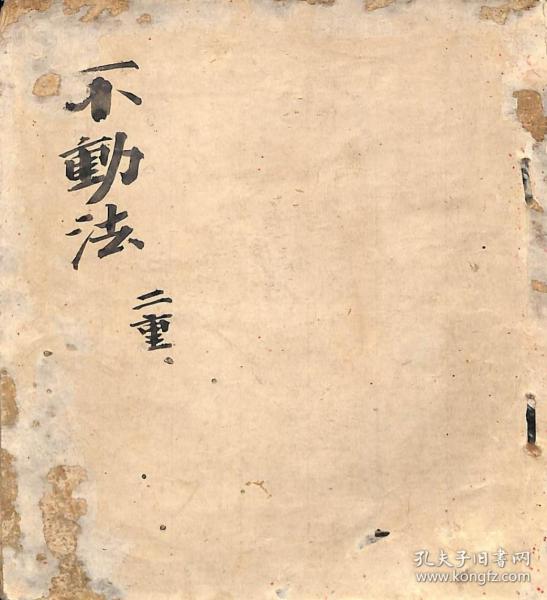 不動法
二重
孔夫子旧书网
www.kongfz.com